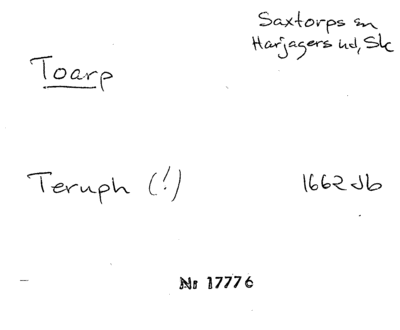 Saxtorps sn
Harjagers hd, Sk
Toarp
Teruph (!) 1662 Jb
Nr 17776